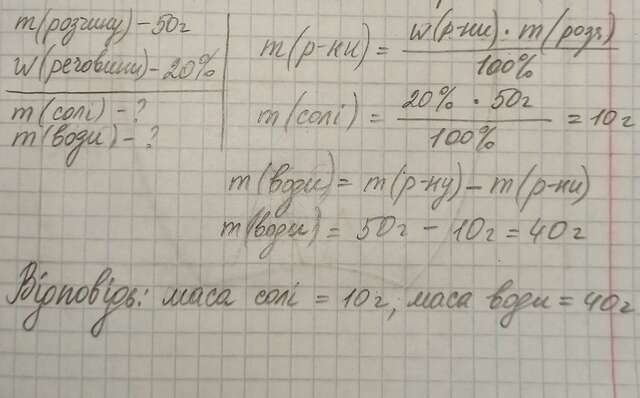 m(розчину) - 50г
w(речовини) - 20%
m(солі) - ?
m(води) - ?
m(р-ни) = w(р-ни) · m(розч.) / 100%
m(солі) = 20% · 50г / 100% = 10г
m(води) = m(р-ну) - m(р-ни)
m(води) = 50г - 10г = 40г
Відповідь: маса солі = 10г, маса води = 40г